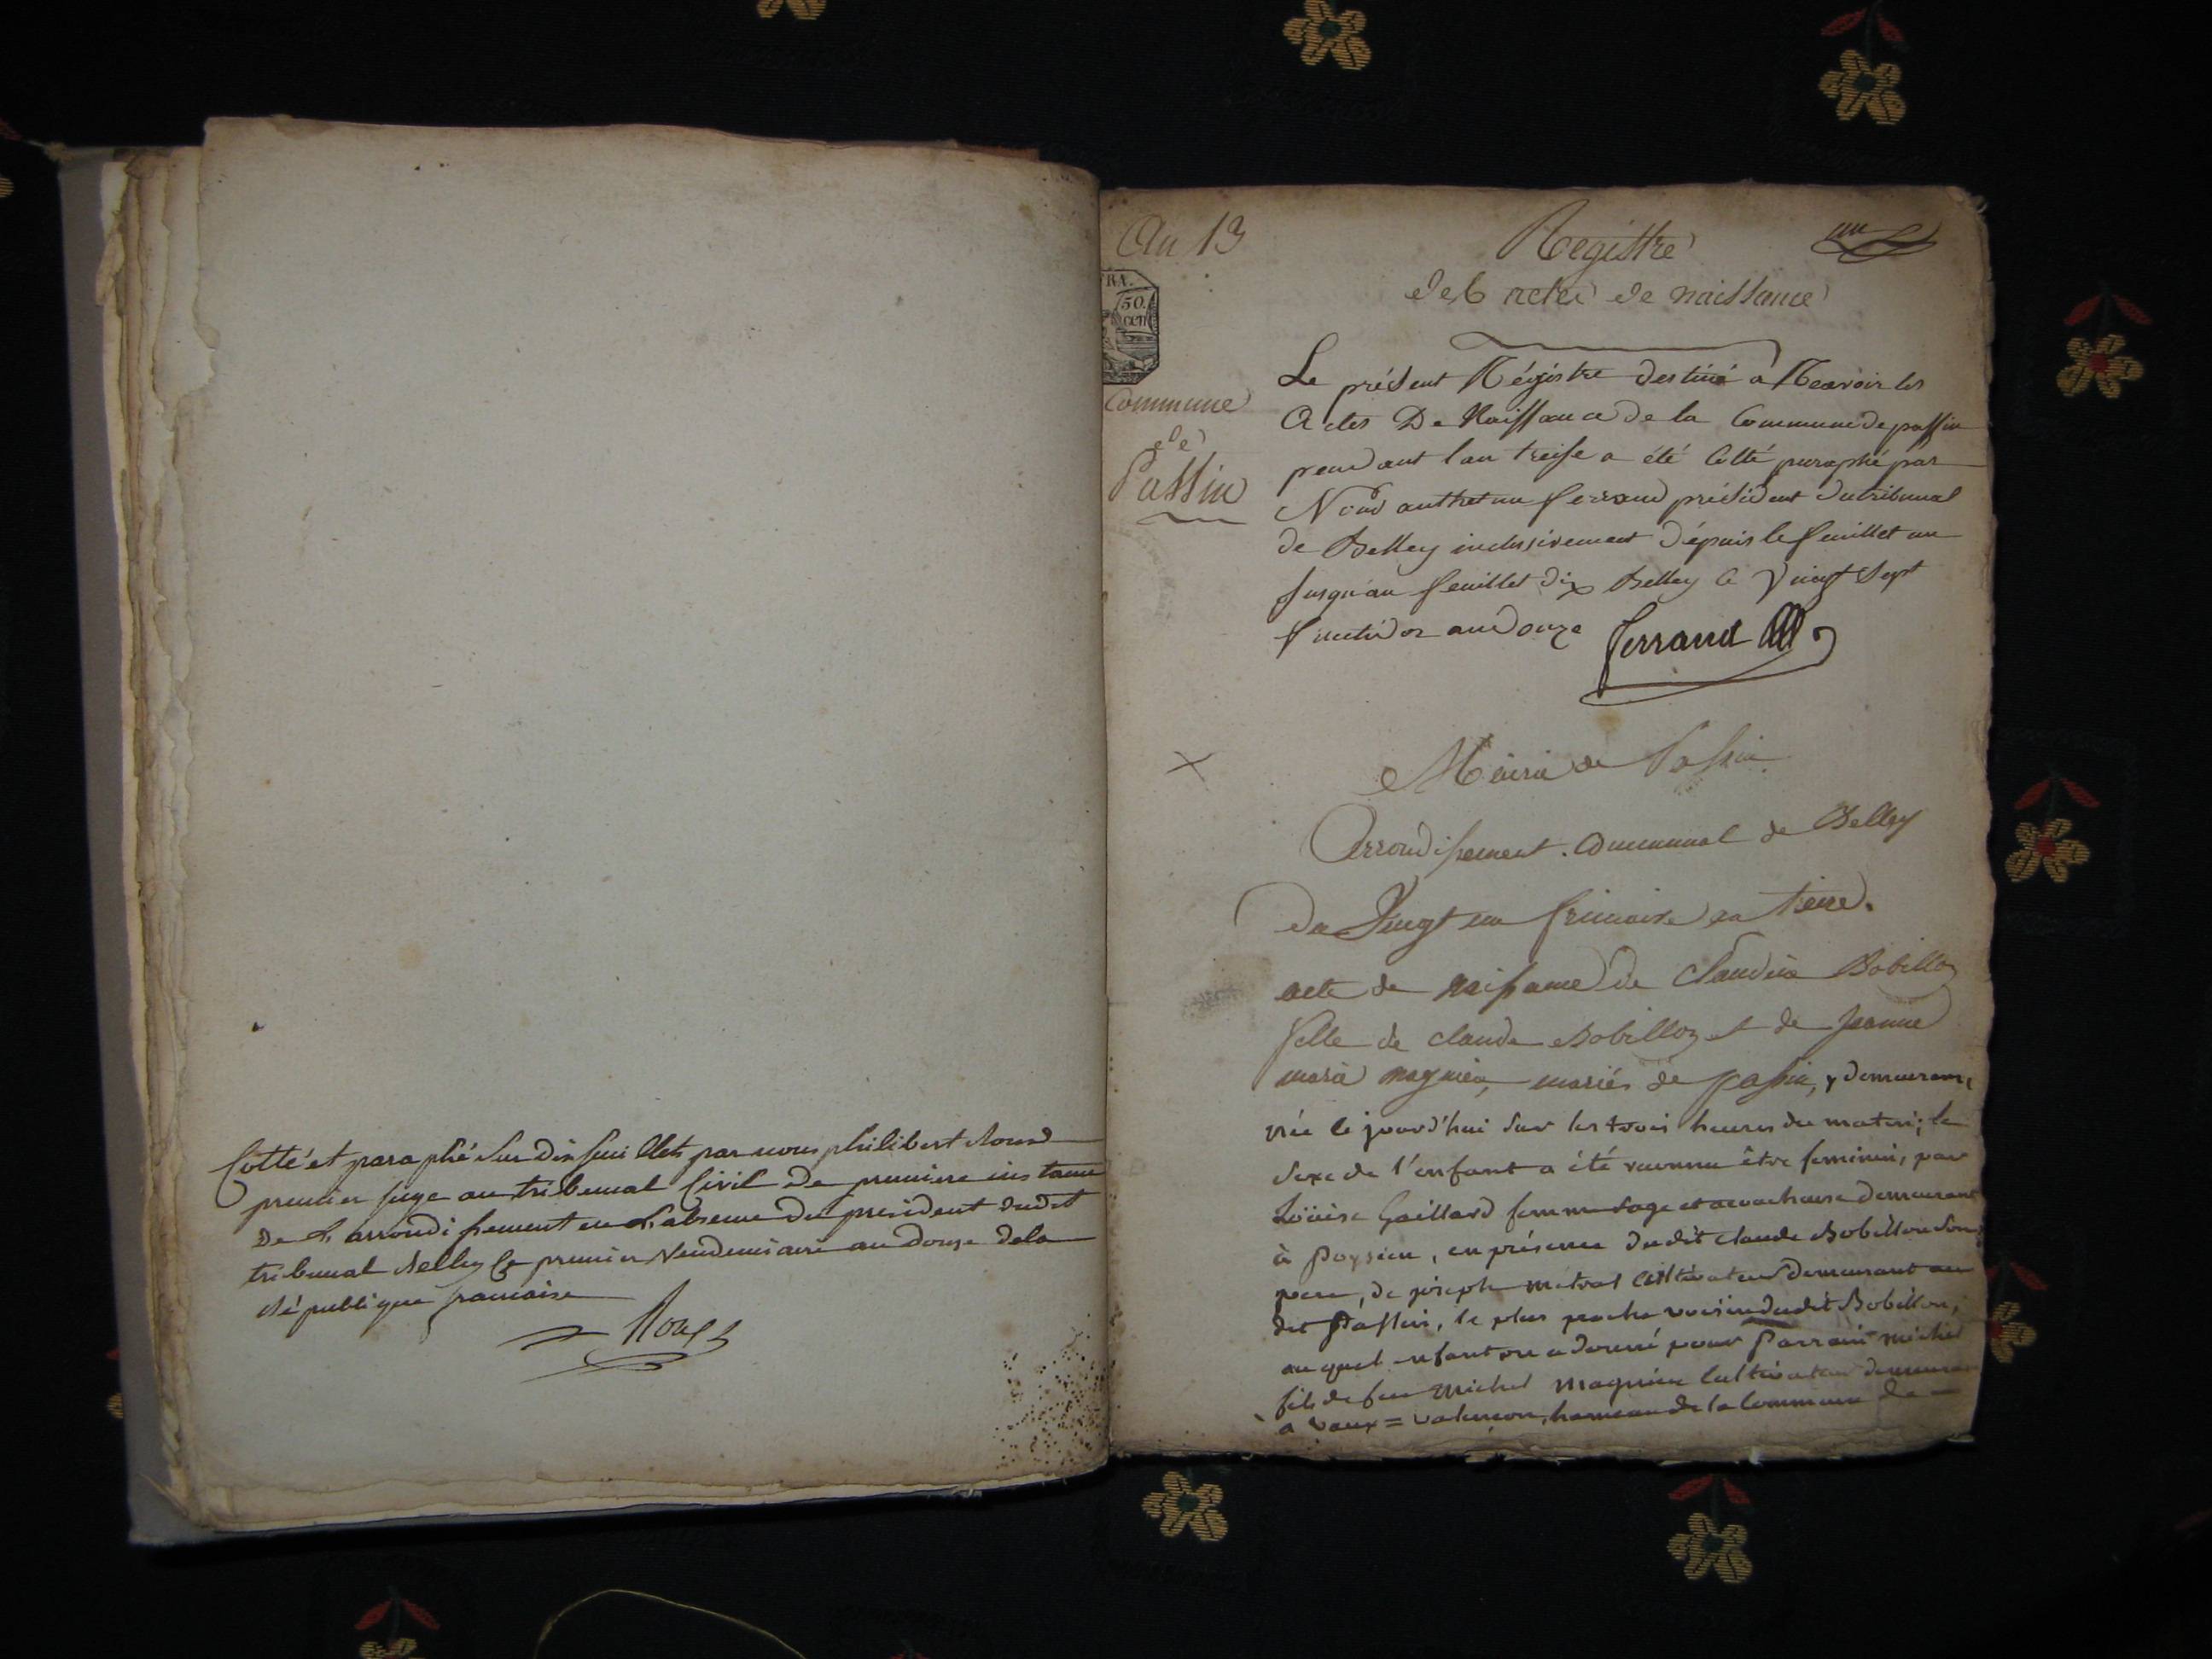 Cotté et paraphé sur dix feuillets par nous philibert
premier juge au tribunal Civil de premiere instance
De L'arrondissement en L'absence du président dudit
tribunal Belley Ce premier Vendemiaire an douze dela
République francaise
An 13
FRA.
50.
CEN
Commune
de
Passin
Registre
un
des actes de naissance
Le présent Régistre destiné a Recevoir les
Actes De Naissance de la Commune de passin
pendant l'an treise a été Cotté paraphé par
Nous anthelme ferrand président du tribunal
de Belley inclusivement dépuis le feuillet un
Jusqu'au feuillet dix Belley le Vingt Sept
fructidor an Douze ferrand
Mairie de Passin
Arrondissement communal de Belley
Du Vingt un frimaire an treize.
acte de naissance de Claudine Bobillon
fille de claude Bobillon et de jeanne
marie magnien, mariés de passin, y demeurant,
née le jourd'hui sur les trois heures du matin; le
sexe de l'enfant a été reconnu être feminin, par
Loüise Gaillard femme sage et acoucheuse demeurant
à Poysieu, en présence dudit claude Bobillon son
pere, de joseph métral Cultivateur demeurant au
dit Passin, le plus proche voisin dudit Bobillon,
auquel enfant on a donné pour Parrain michel
fils de feu michel magnien Cultivateur demeurant
a Vaux = valençon, hameau de la Commune de